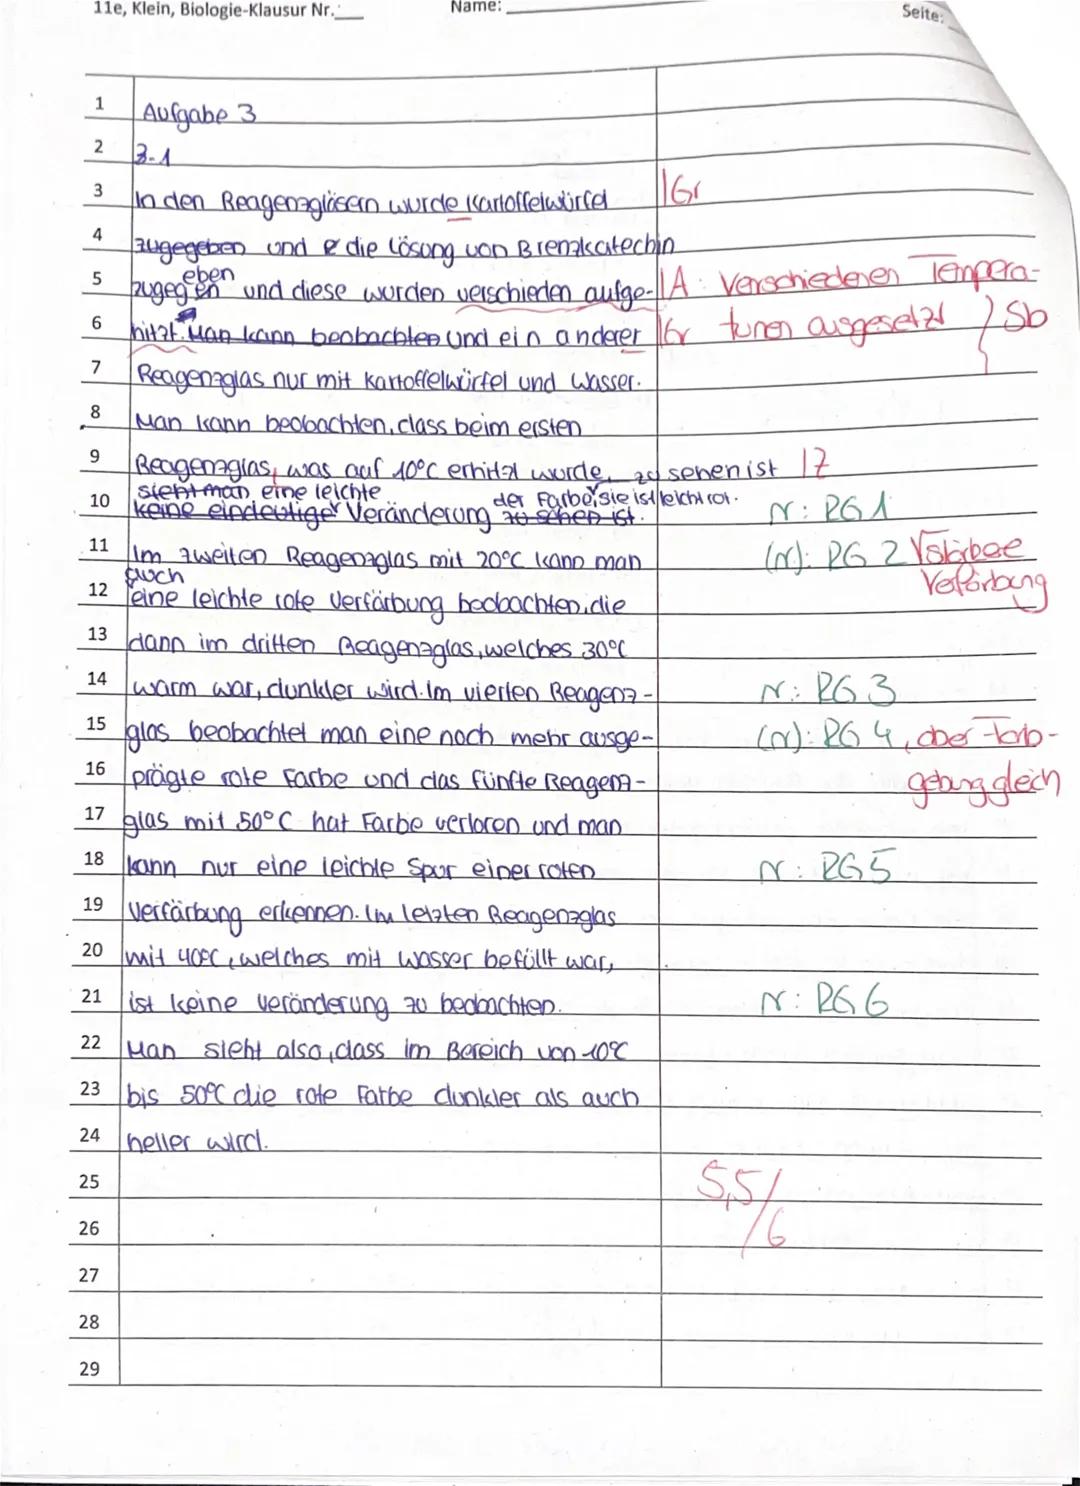 11e, Klein, Biologie-Klausur Nr.: Name: Seite:
1 Aufgabe 3
2 3.1
3 In den Reagenzgläsern wurde Kartoffelwürfel |Gr
4 zugegeben und die Lösung von Brenzkatechin
5 zugegeben und diese wurden verschieden aufge- |A: Verschiedenen Tempera-
6 hitzt. Man kann beobachten und ein anderer |Gr turen ausgesetzt } Sb
7 Reagenzglas nur mit Kartoffelwürfel und Wasser.
8 Man kann beobachten, dass beim ersten
9 Reagenzglas, was auf 10°C erhitzt wurde, zu sehen ist |Z
sieht man eine leichte der Farbe, sie ist leicht rot.
10 keine eindeutige Veränderung zu sehen ist. r: RG 1
11 Im zweiten Reagenzglas mit 20°C kann man (r): RG 2 stärkere
auch Verfärbung
12 eine leichte rote Verfärbung beobachten, die
13 dann im dritten Reagenzglas, welches 30°C
14 warm war, dunkler wird. Im vierten Reagenz- r: RG 3
15 glas beobachtet man eine noch mehr ausge- (r): RG 4, aber Farb-
16 prägte rote Farbe und das fünfte Reagenz- gebung gleich
17 glas mit 50°C hat Farbe verloren und man
18 kann nur eine leichte Spur einer roten r: RG 5
19 Verfärbung erkennen. Im letzten Reagenzglas
20 mit 40°C, welches mit Wasser befüllt war,
21 ist keine Veränderung zu beobachten. r: RG 6
22 Man sieht also, dass im Bereich von 10°C
23 bis 50°C die rote Farbe dunkler als auch
24 heller wird.
25 5,5/6
26
27
28
29